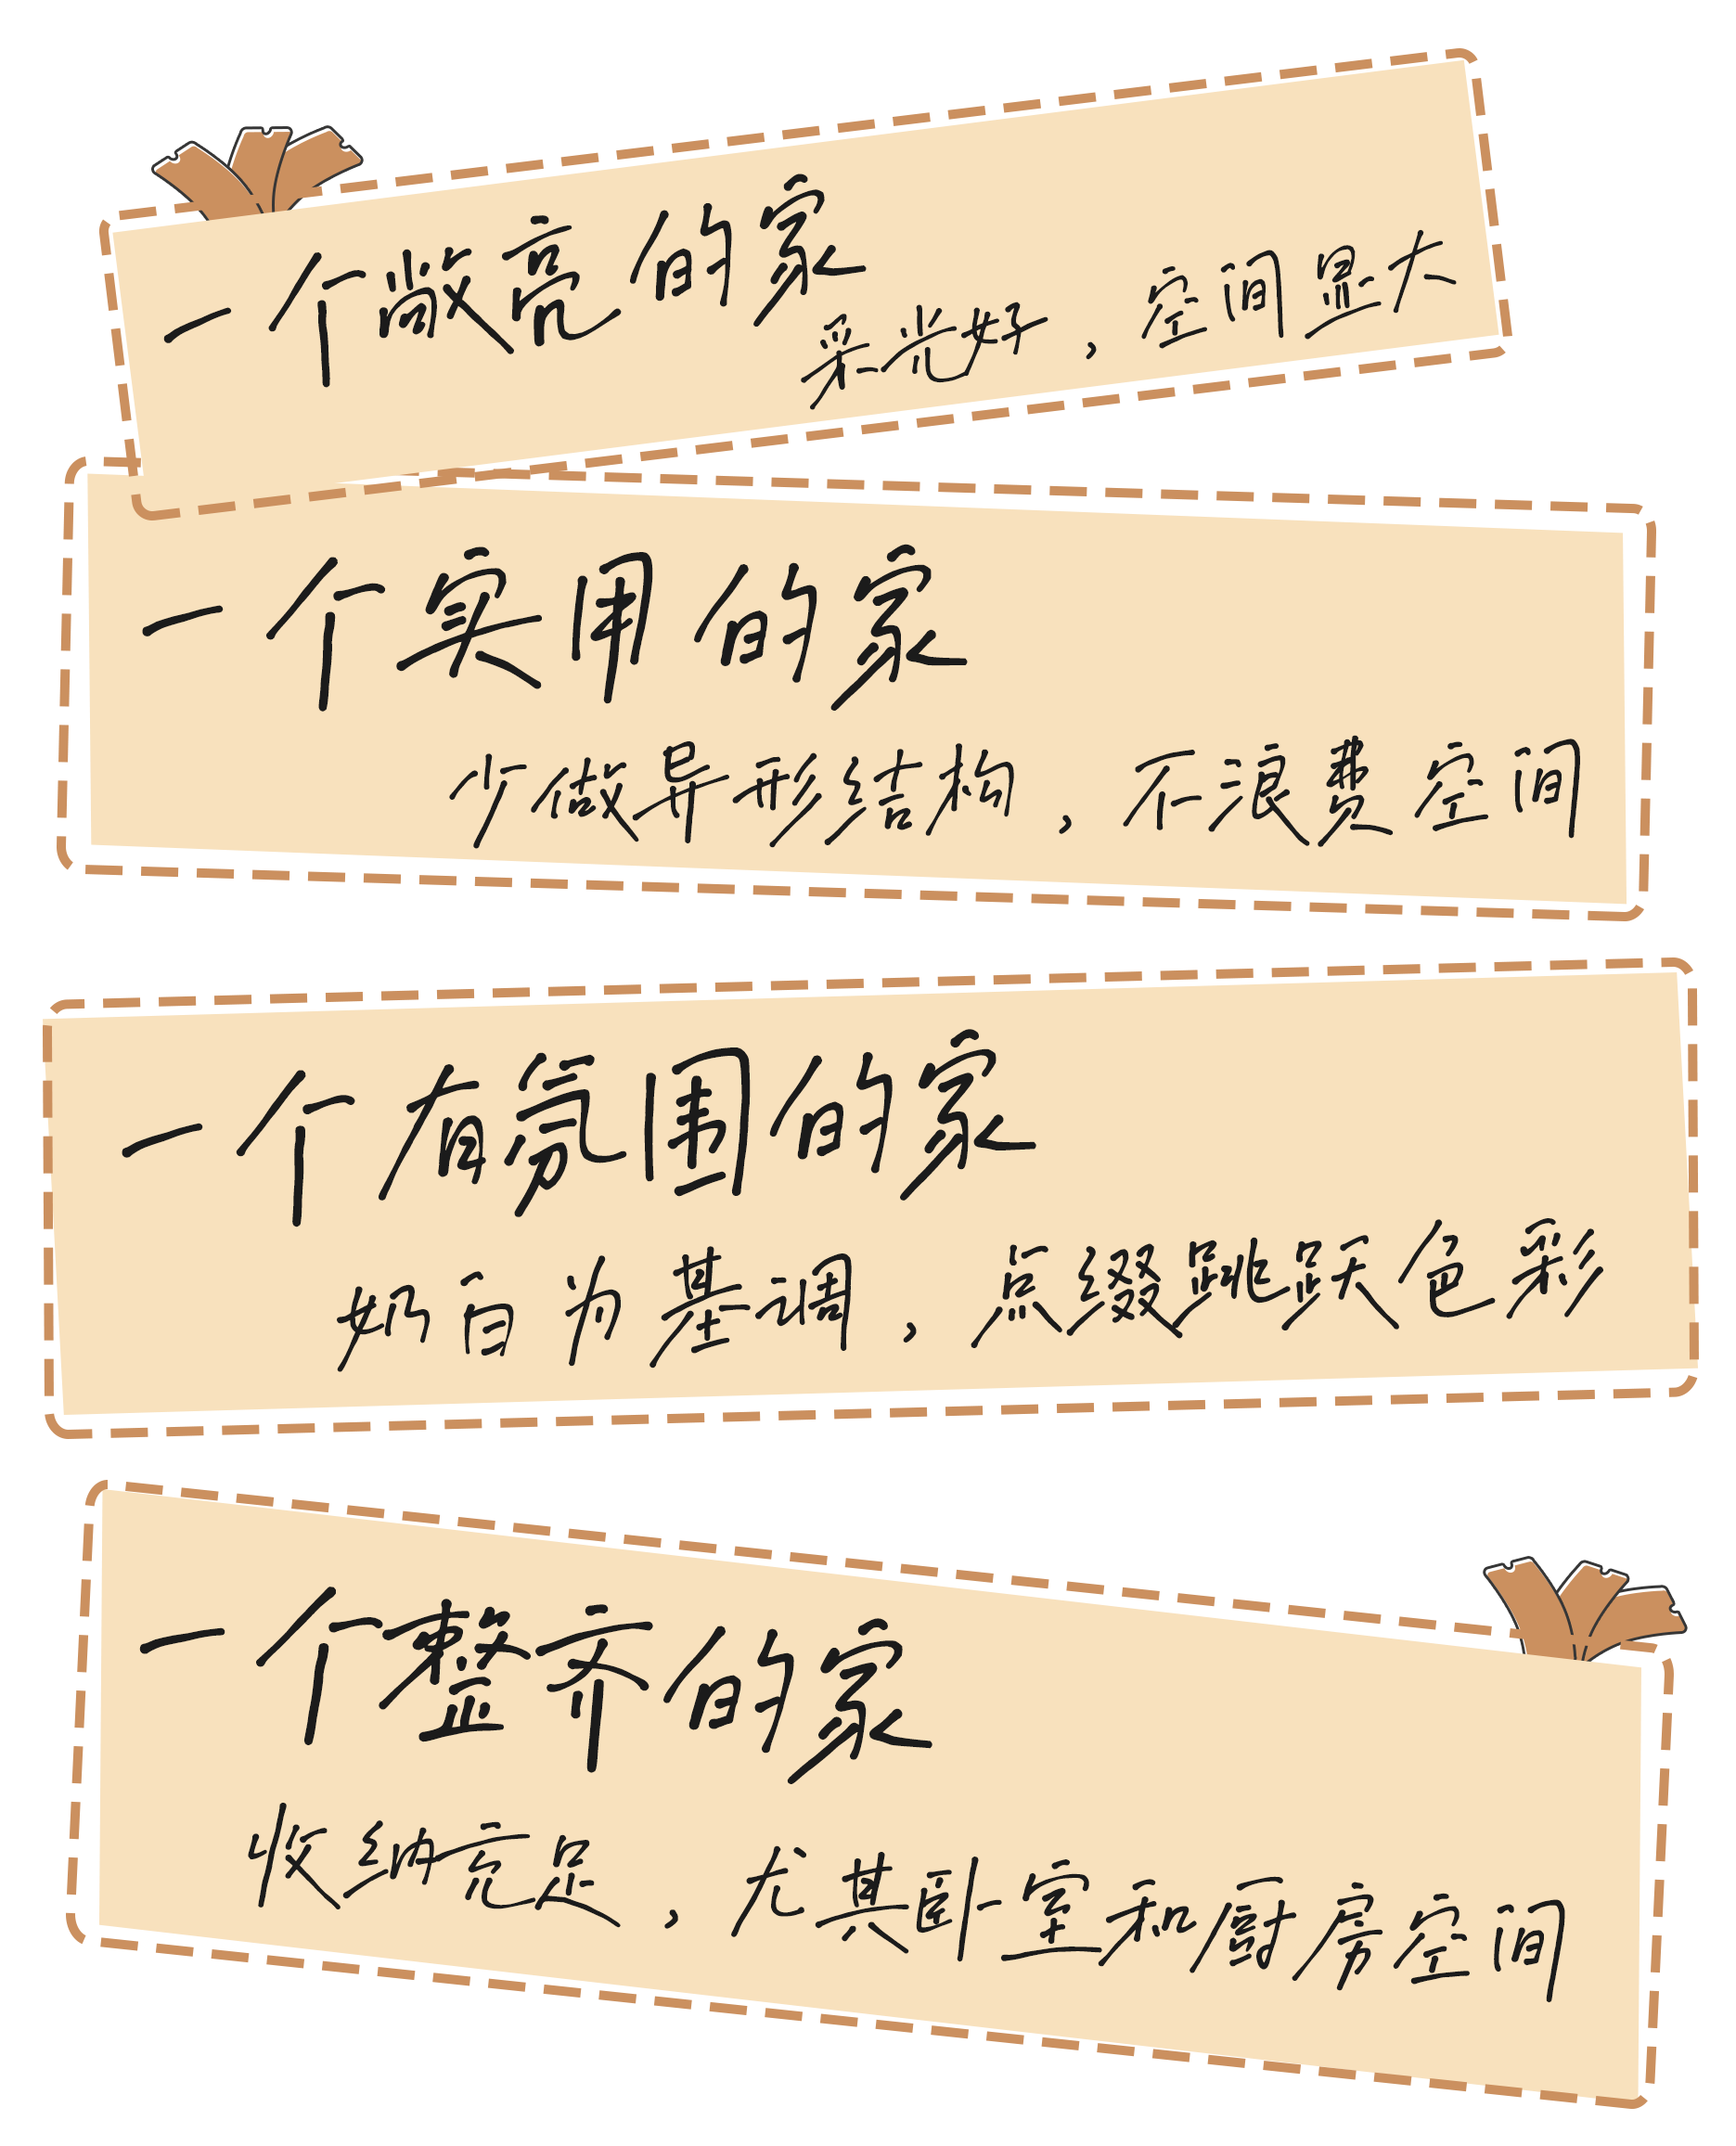 一个敞亮的家
采光好，空间显大
一个实用的家
少做异形结构，不浪费空间
一个有氛围的家
奶白为基调，点缀跳跃色彩
一个整齐的家
收纳充足，尤其卧室和厨房空间